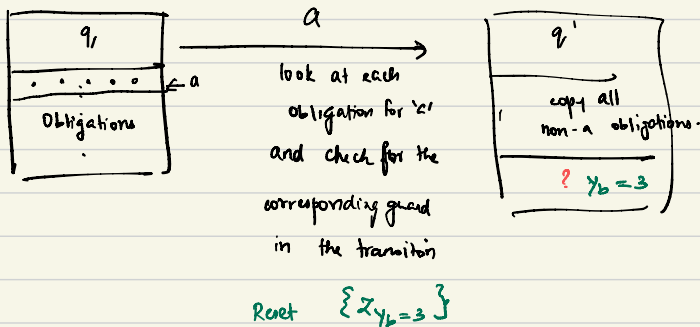 a
q,
← a
Obligations
look at each
obligation for 'a'
and check for the
corresponding guard
in the transiton
Reset {z y_b = 3}
q'
copy all
non-a obligations.
? y_b = 3